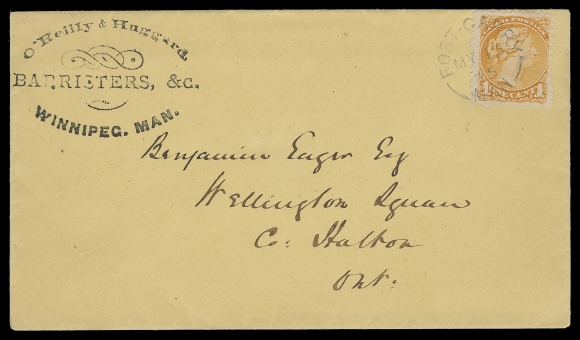 O'Reilly & Haggard,
BARRISTERS, &c.
WINNIPEG, MAN.
FORT-GA
MY
CANADA POSTAGE
1 ONE CENT 1
Benjamin Eager Esq
Wellington Square
Co: Halton
Ont: